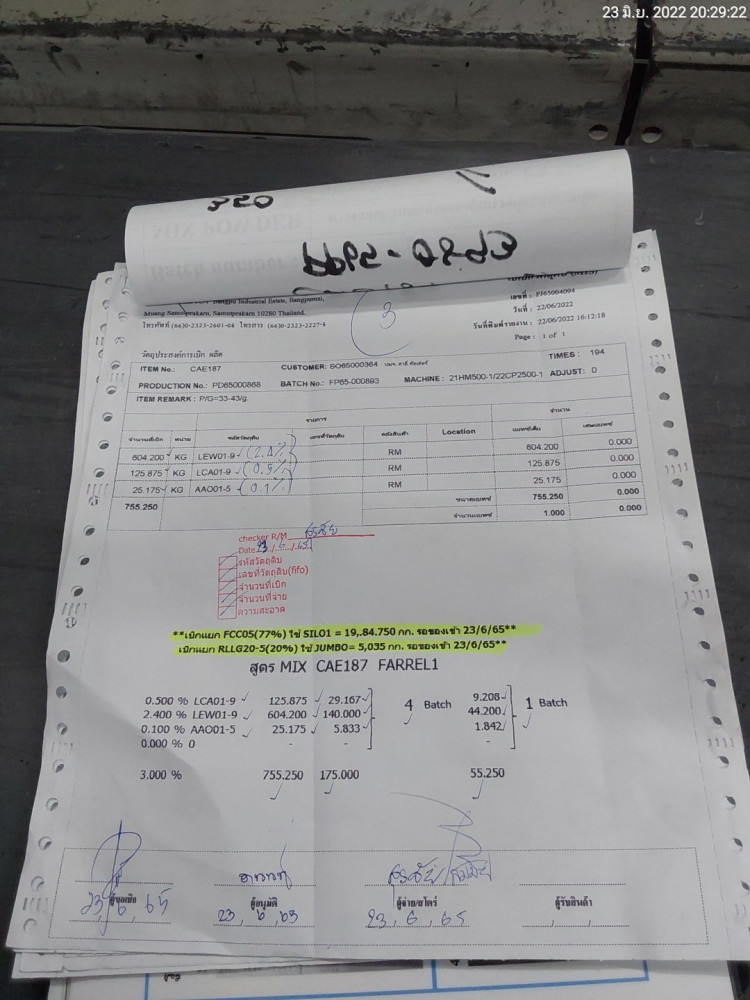 23 มิ.ย. 2022 20:29:22
Bangpu Industrial Estate, Bangpumai,
Muang Samutprakarn, Samutprakarn 10280 Thailand.
โทรศัพท์ (66)0-2323-2601-08 โทรสาร (66)0-2323-2227-8
3
เลขที่ : PJ65004094
วันที่ : 22/06/2022
วันที่พิมพ์รายงาน : 22/06/2022 16:12:18
Page : 1 of 1
วัตถุประสงค์การเบิก ผลิต
ITEM No.: CAE187 CUSTOMER: SO65000364 TIMES : 194
PRODUCTION No.: PD65000868 BATCH No.: FP65-000893 MACHINE : 21HM500-1/22CP2500-1 ADJUST: 0
ITEM REMARK : P/G=33-43/g.
รายการ จำนวน
จำนวนที่เบิก หน่วย รหัสวัตถุดิบ เลขที่วัตถุดิบ คลังสินค้า Location แบทช์เต็ม เศษแบทช์
604.200 KG LEW01-9 (2.4%) RM 604.200 0.000
125.875 KG LCA01-9 (0.5%) RM 125.875 0.000
25.175 KG AAO01-5 (0.1%) RM 25.175 0.000
755.250 ขนาดแบทช์ 755.250 0.000
จำนวนแบทช์ 1.000 0.000
checker R/M
Date 23 / 6 / 65
รหัสวัตถุดิบ
เลขที่วัตถุดิบ(fifo)
จำนวนที่เบิก
จำนวนที่จ่าย
ความสะอาด
**เบิกแยก FCC05(77%) ใช้ SILO1 = 19,.84.750 กก. รอของเข้า 23/6/65**
เบิกแยก RLLG20-5(20%) ใช้ JUMBO= 5,035 กก. รอของเข้า 23/6/65**
สูตร MIX CAE187 FARREL1
0.500 % LCA01-9 125.875 29.167 9.208
2.400 % LEW01-9 604.200 140.000 4 Batch 44.200 1 Batch
0.100 % AAO01-5 25.175 5.833 1.842
0.000 % 0 - - -
3.000 % 755.250 175.000 55.250
ผู้ขอเบิก ผู้อนุมัติ ผู้จ่าย/สโตร์ ผู้รับสินค้า
23 6 65 23 6 65 23 6 65